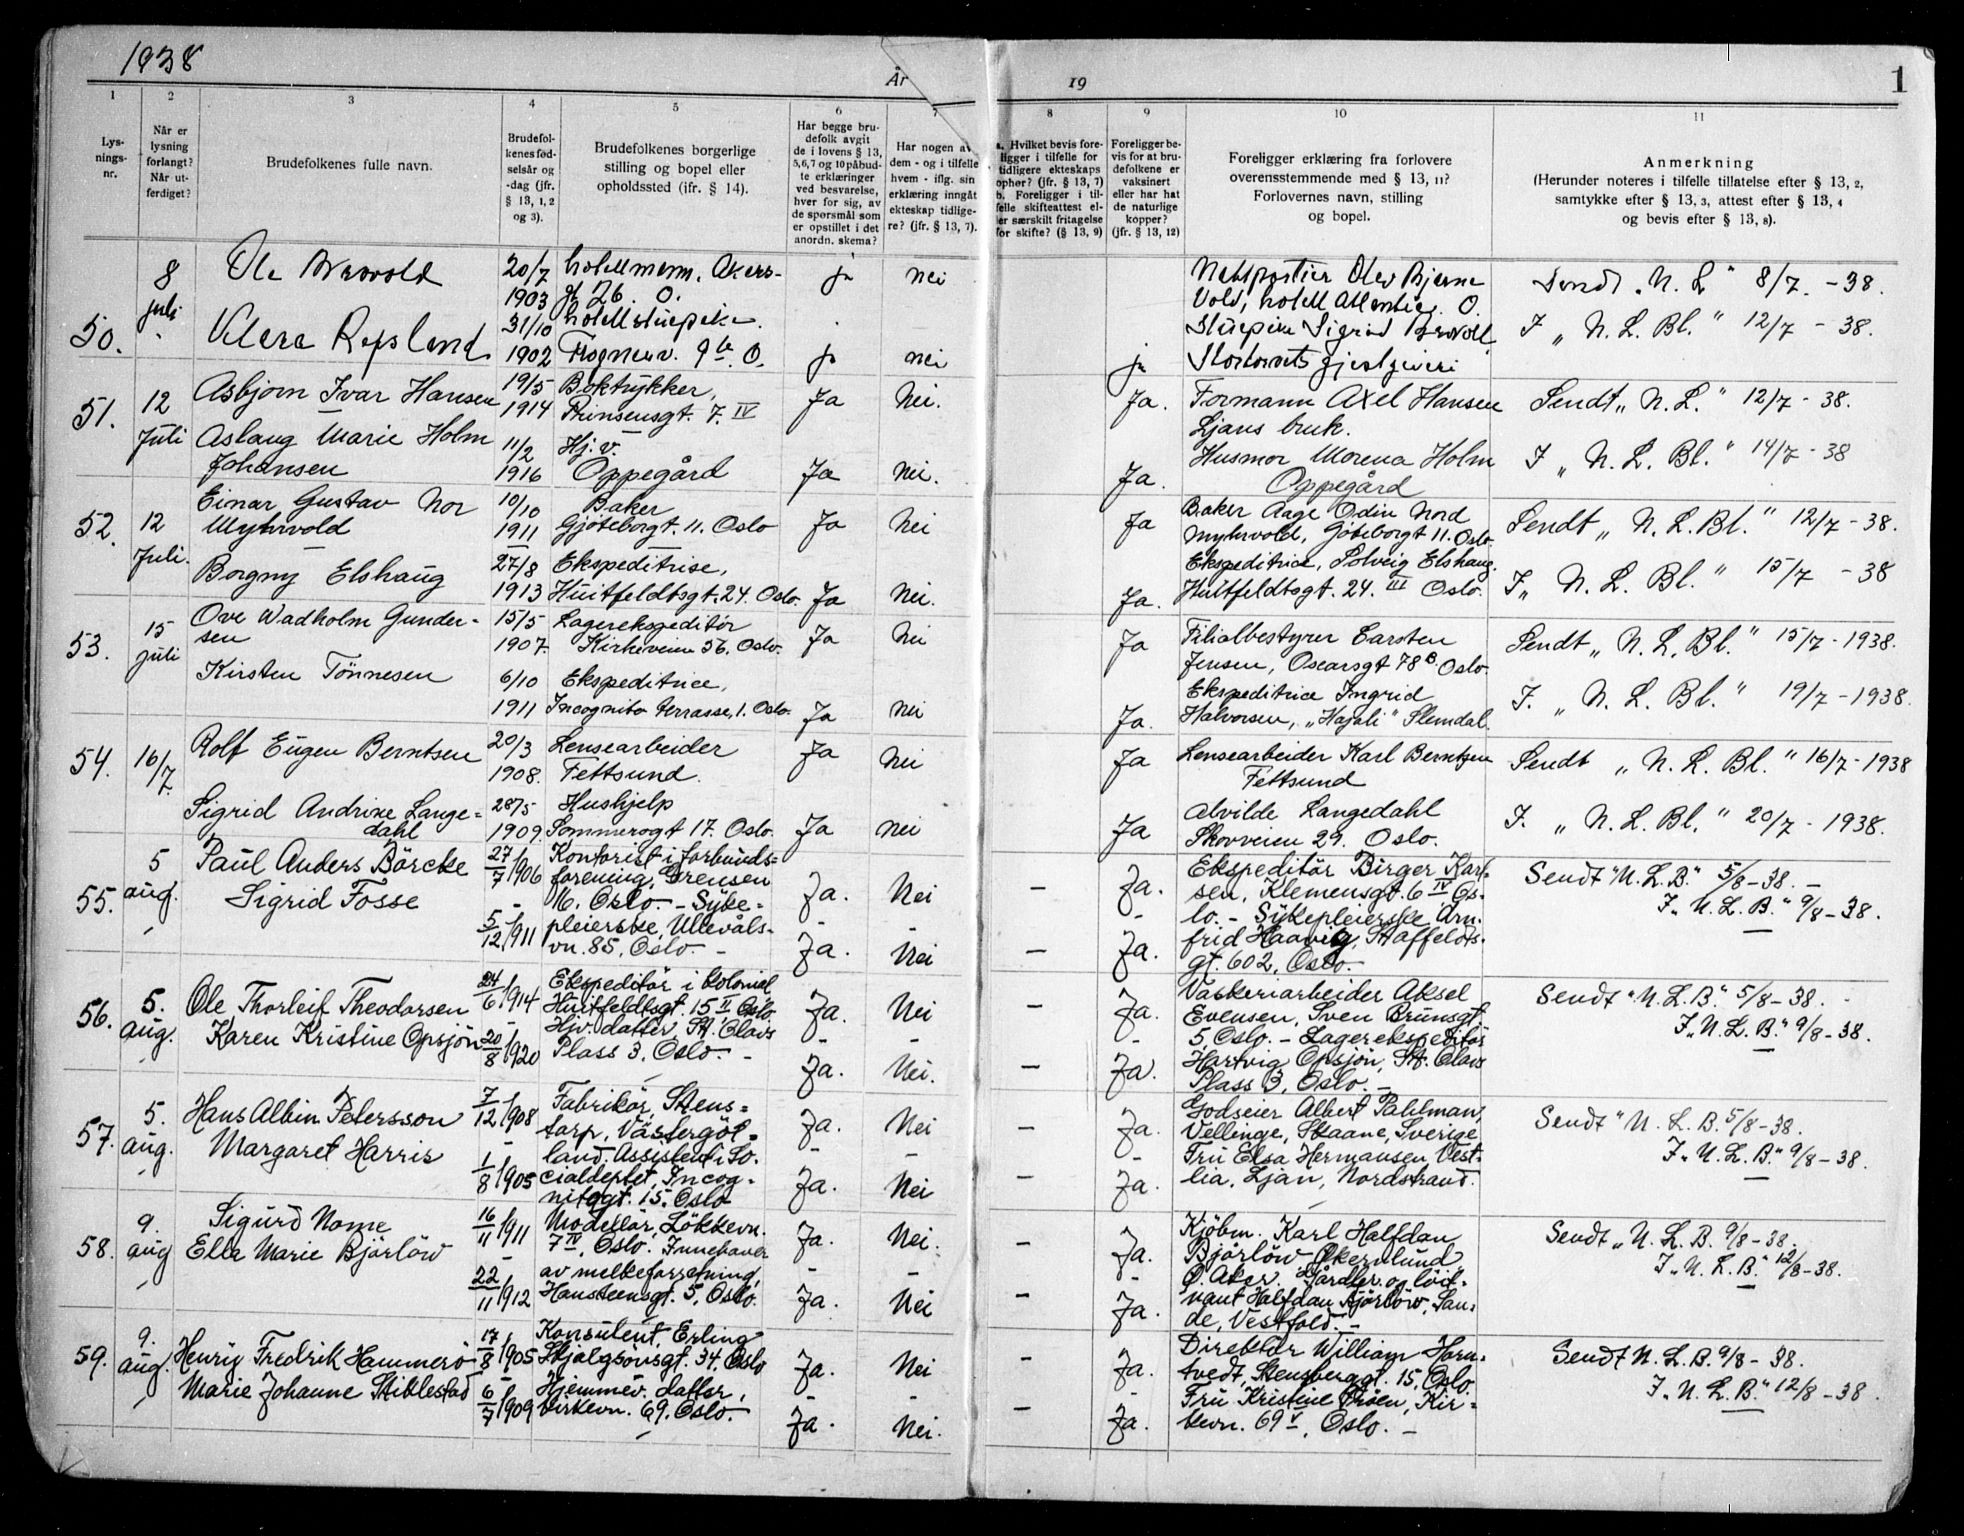 1938
År
19
1
1
2
3
4
5
6
7
8
9
10
11
Lys-
nings-
nr.
Når er
lysning
forlangt?
Når ut-
ferdiget?
Brudefolkenes fulle navn.
Brudefol-
kenes fød-
selsår og
-dag (jfr.
§ 13, 1, 2
og 3).
Brudefolkenes borgerlige
stilling og bopel eller
opholdssted (ifr. § 14).
Har begge bru-
defolk avgit
de i lovens § 13,
5,6,7 og 10 påbud-
te erklæringer
ved besvarelse,
hver for sig, av
de spørsmål som
er opstillet i det
anordn. skema?
Har nogen av
dem - og i tilfelle
hvem - iflg. sin
erklæring inngåt
ekteskap tidlige-
re? (jfr. § 13, 7).
a. Hvilket bevis fore-
ligger i tilfelle for
tidligere ekteskaps
ophør? (jfr. § 13, 7)
b. Foreligger i til-
felle skifteattest el-
ler særskilt fritagelse
for skifte? (§ 13, 9)
Foreligger be-
vis for at bru-
defolkene er
vaksinert
eller har hat
de naturlige
kopper?
(jfr. § 13, 12)
Foreligger erklæring fra forlovere
overensstemmende med § 13, 11?
Forlovernes navn, stilling
og bopel.
Anmerkning
(Herunder noteres i tilfelle tillatelse efter § 13, 2,
samtykke efter § 13, 3, attest efter § 13, 4
og bevis efter § 13, 8).
50.
8
juli
Ole
20/7
1903
Akers-
gt 26. O.
ja
nei
hotell Atlantic. O.
Sendt "N. L." 8/7. - 38.
31/10
1902
Frognerv. 9b O.
ja
nei
ja
Stuepike Sigrid
Stortorvets gjestgiveri
I "N. L. Bl." 12/7 - 38.
51.
12
Juli
Asbjørn Ivar Hansen
19/5
1914
Boktrykker,
Prinsensgt. 7. IV
Ja
Nei.
Ja.
Formann Axel Hansen
Ljans bruk.
Sendt "N. L." 12/7 - 38.
Aslaug Marie Holm
Johansen
11/2
1916
Hj. v.
Oppegård
Ja
Nei.
Ja.
Husmor Morena Holm
Oppegård
I "N. L. Bl." 14/7 - 38
52.
12
Juli.
Einar Gustav Nor
Myhrvold
10/10
1911
Baker
Gjøteborgt. 11. Oslo
Ja
Nei
Ja
Baker Aage Odin Nord
Myhrvold, Gøteborgt 11. Oslo.
Sendt "N. L. Bl." 12/7 - 38.
Borgny Elshaug
27/8
1913
Ekspeditrise,
Huitfeldtsgt. 24. Oslo.
Ja
Nei.
Ja.
Ekspeditrice, Solveig Elshaug.
Huitfeldtsgt. 24. III Oslo.
I "N. L. Bl." 15/7 - 38
53.
15
juli
Ove Wadholm Gunder-
sen
15/5
1907.
Lagerekspeditör
Kirkeveien 56. Oslo.
Ja
Nei
Ja
Filialbestyrer Carsten
Jensen, Oscarsgt 78B Oslo.
Sendt "N. L. Bl." 15/7 - 1938.
Kirsten Tönnesen
6/10
1911
Ekspeditrice,
Incognito terrasse, 1. Oslo.
Ja
Nei
Ja.
Ekspeditrice Ingrid
Halvorsen, "Hajali" Slemdal.
I. "N. L. Bl." 19/7 - 1938.
54.
16/7.
Rolf Eugen Berntsen
20/3
1908.
Lensearbeider
Fettsund.
Ja
Nei
Ja
Lensearbeider Karl Berntzen
Fettsund
Sendt "N. L. Bl." 16/7 - 1938
Sigrid Andrine Lange-
dahl
28/5
1909.
Hushjelp
Sommerogt 17. Oslo.
Ja
Nei
Ja
Alvilde Langedahl
Skovveien 29. Oslo.
I. "N. L. Bl." 20/7 - 1938.
55.
5
aug.
Paul Anders Börcke
Sigrid Fosse
27/7 1906
5/12 1911
Kontorist i forbunds-
forening, Grensen
Oslo. - Syke-
pleierske, Ullevåls-
vn. 85, Oslo. -
Ja.
Nei
Ja.
Nei
Ja.
Ja.
Ekspeditör Birger Karl-
sen, Klemensgt. 6 IV Os-
lo. - Sykepleierske Arn-
frid Haavig, Staffeldts-
gt. 602, Oslo. -
Sendt "N. L. B." 5/8 - 38. -
I "N. L. B." 9/8 - 38.
56.
5.
aug.
Ole Thorleif Theodorsen
Karen Kristine Opsjön
24/6 1914
20/8 1920
Ekspeditör i kolonial
Huitfeldtsgt. 15 II, Oslo.
Hjv. datter St. Olavs
Plass 3, Oslo. -
Ja.
Nei
Ja.
Nei.
Ja.
Ja.
Vaskeriarbeider Aksel
Evensen, Sven Brunsgt.
5, Oslo. - Lagerekspeditör
Hartvig Opsjön, St. Olavs
Plass 3, Oslo. -
Sendt "N. L. B." 5/8 - 38. -
I "N. L. B." 9/8 - 38.
57.
5.
aug.
Hans Albin Petersson
Margaret Harris
7/12 1908
1/8 1905
Fabrikör, Stens-
torp, Västergöt-
land. Assistent i So-
cialdeptet, Incog-
nitogt. 15, Oslo
Ja.
Nei
Ja.
Nei
Ja.
Ja.
Godseier Albert Pahlman,
Vellinge, Skaane, Sverige
Fru Elsa Hermansen Vest-
lia, Ljan, Nordstrand.
Sendt "N. L. B. 5/8 - 38.
I "N. L. B." 9/8 - 38.
58.
9.
aug
Sigurd Nome
Ella Marie Björlöw
16/11 1911
22/11 1912
Modellör, Lökkevn.
7 IV, Oslo. Innehaver
av melkeforretning,
Hansteensgt. 5, Oslo.
Ja.
Nei.
Ja.
Nei
Ja.
Ja.
Kjöbm. Karl Halfdan
Björlöw, Økernlund
Ö. Aker. Gårdbr. og löit-
nant Halfdan Björlöw, San-
de, Vestfold. -
Sendt "N. L. B. 9/8 - 38.
I "N. L. B." 12/8 - 38.
59.
9.
aug.
Henry Fredrik Hammerö
Marie Johanne Stiklestad
17/8 1905
6/7 1909
Konsulent, Erling
Skjalgsönsgt. 34, Oslo
Hjemmev. datter,
Kirkevn. 69, Oslo. -
Ja.
Nei
Ja.
Nei.
Ja.
Ja.
Direktör William Horn-
tvedt, Stensberggt. 15, Oslo.
Fru Kristine Kir-
kevn. 69 V, Oslo. -
Sendt N. L. B. 9/8 - 38.
I "N. L. B." 12/8 - 38.